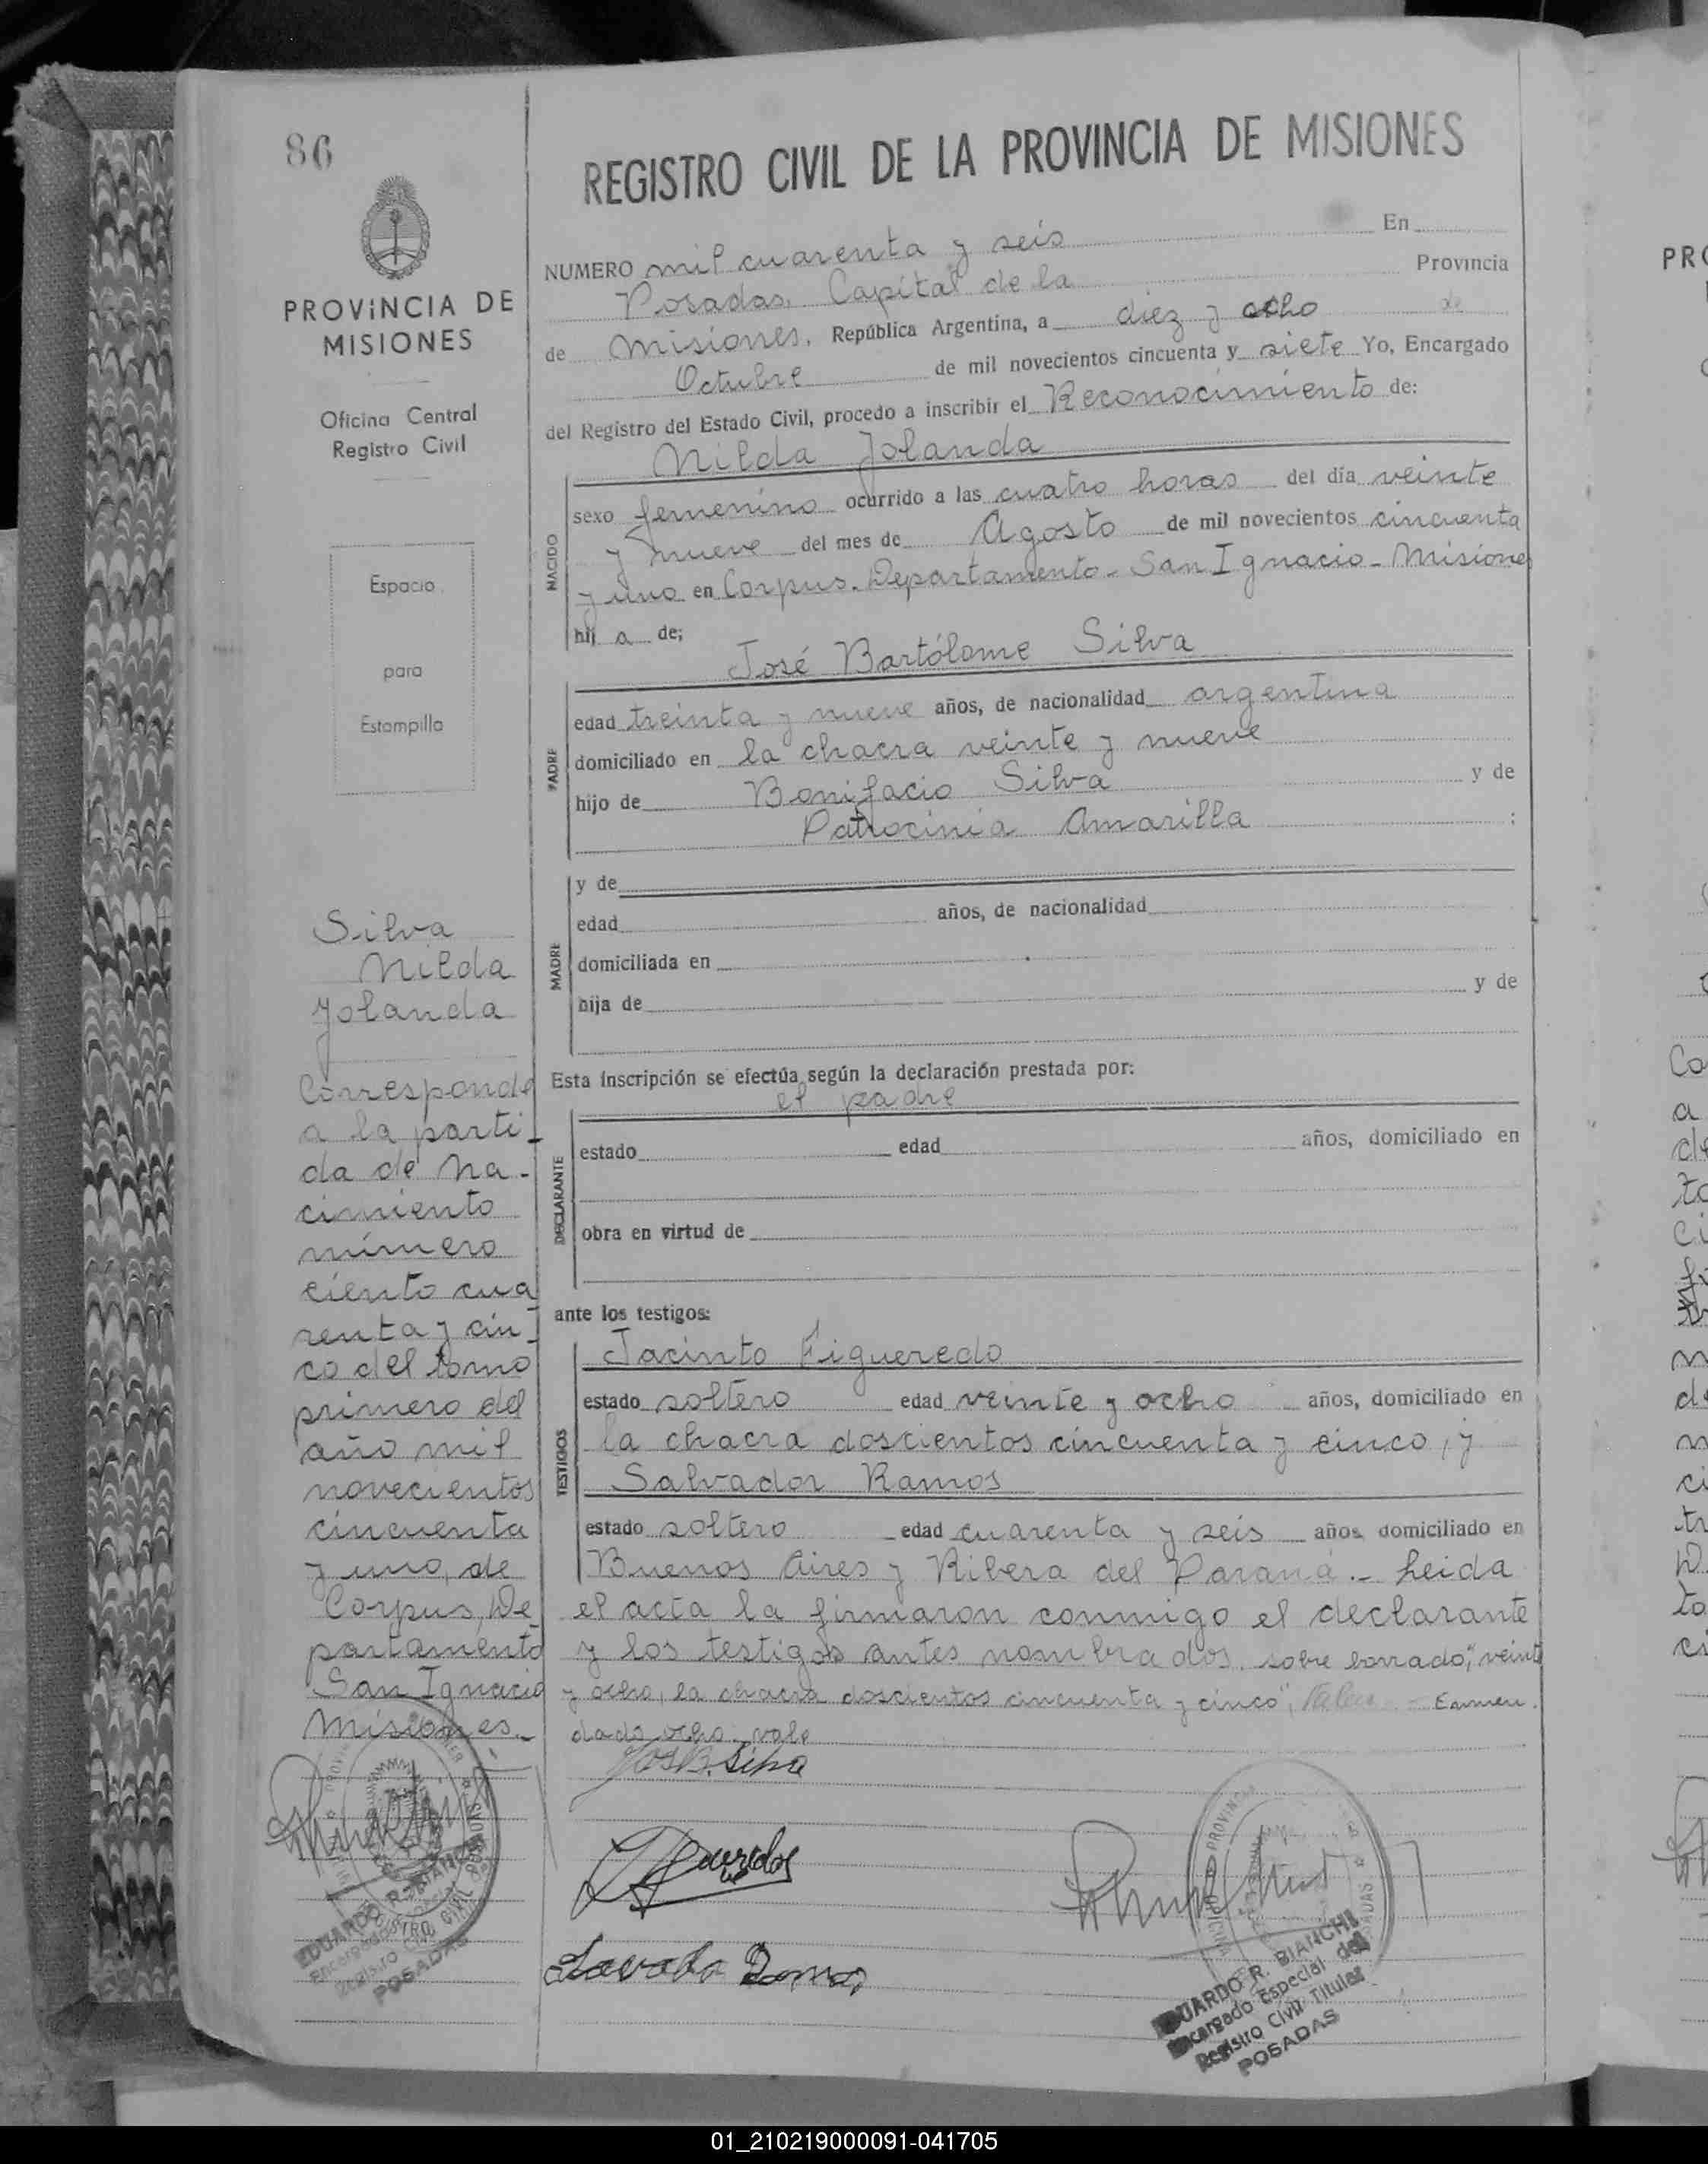 86
PROVINCIA DE
MISIONES
Oficina Central
Registro Civil
Espacio
para
Estampilla
Silva
Nilda
Yolanda
Corresponde
a la parti-
da de na-
cimiento
número
ciento cua
renta y cin-
co del tomo
primero del
año mil
novecientos
cincuenta
y uno, de
Corpus, De
partamento
San Ignacio
Misiones.-
EDUARDO R. BIANCHI
Encargado
Registro
POSADAS
REGISTRO CIVIL DE LA PROVINCIA DE MISIONES
NUMERO mil cuarenta y seis En
Posadas, Capital de la Provincia
de Misiones, República Argentina, a diez y ocho de
Octubre de mil novecientos cincuenta y siete Yo, Encargado
del Registro del Estado Civil, procedo a inscribir el Reconocimiento de:
Nilda Yolanda
NACIDO
sexo femenino ocurrido a las cuatro horas del día veinte
y nueve del mes de Agosto de mil novecientos cincuenta
y uno en Corpus. Departamento - San Ignacio - Misiones
hij a de;
José Bartólome Silva
PADRE
edad treinta y nueve años, de nacionalidad argentina
domiciliado en la chacra veinte y nueve
hijo de Bonifacio Silva y de
Patrocinia Amarilla :
MADRE
y de
edad años, de nacionalidad
domiciliada en
hija de y de
Esta inscripción se efectúa según la declaración prestada por:
el padre
DECLARANTE
estado edad años, domiciliado en
obra en virtud de
ante los testigos:
TESTIGOS
Jacinto Figueredo
estado soltero edad veinte y ocho años, domiciliado en
la chacra doscientos cincuenta y cinco, y
Salvador Ramos
estado soltero edad cuarenta y seis años domiciliado en
Buenos Aires y Ribera del Paraná.- Leida
el acta la firmaron conmigo el declarante
y los testigos antes nombrados. sobre borrado: "veinte
y ocho, la chacra doscientos cincuenta y cinco", Valen - Enmen
dado ocho - vale
José B. Silva
EDUARDO R. BIANCHI
Encargado Especial del
Registro Civil Titular
POSADAS
PRO
01_210219000091-041705